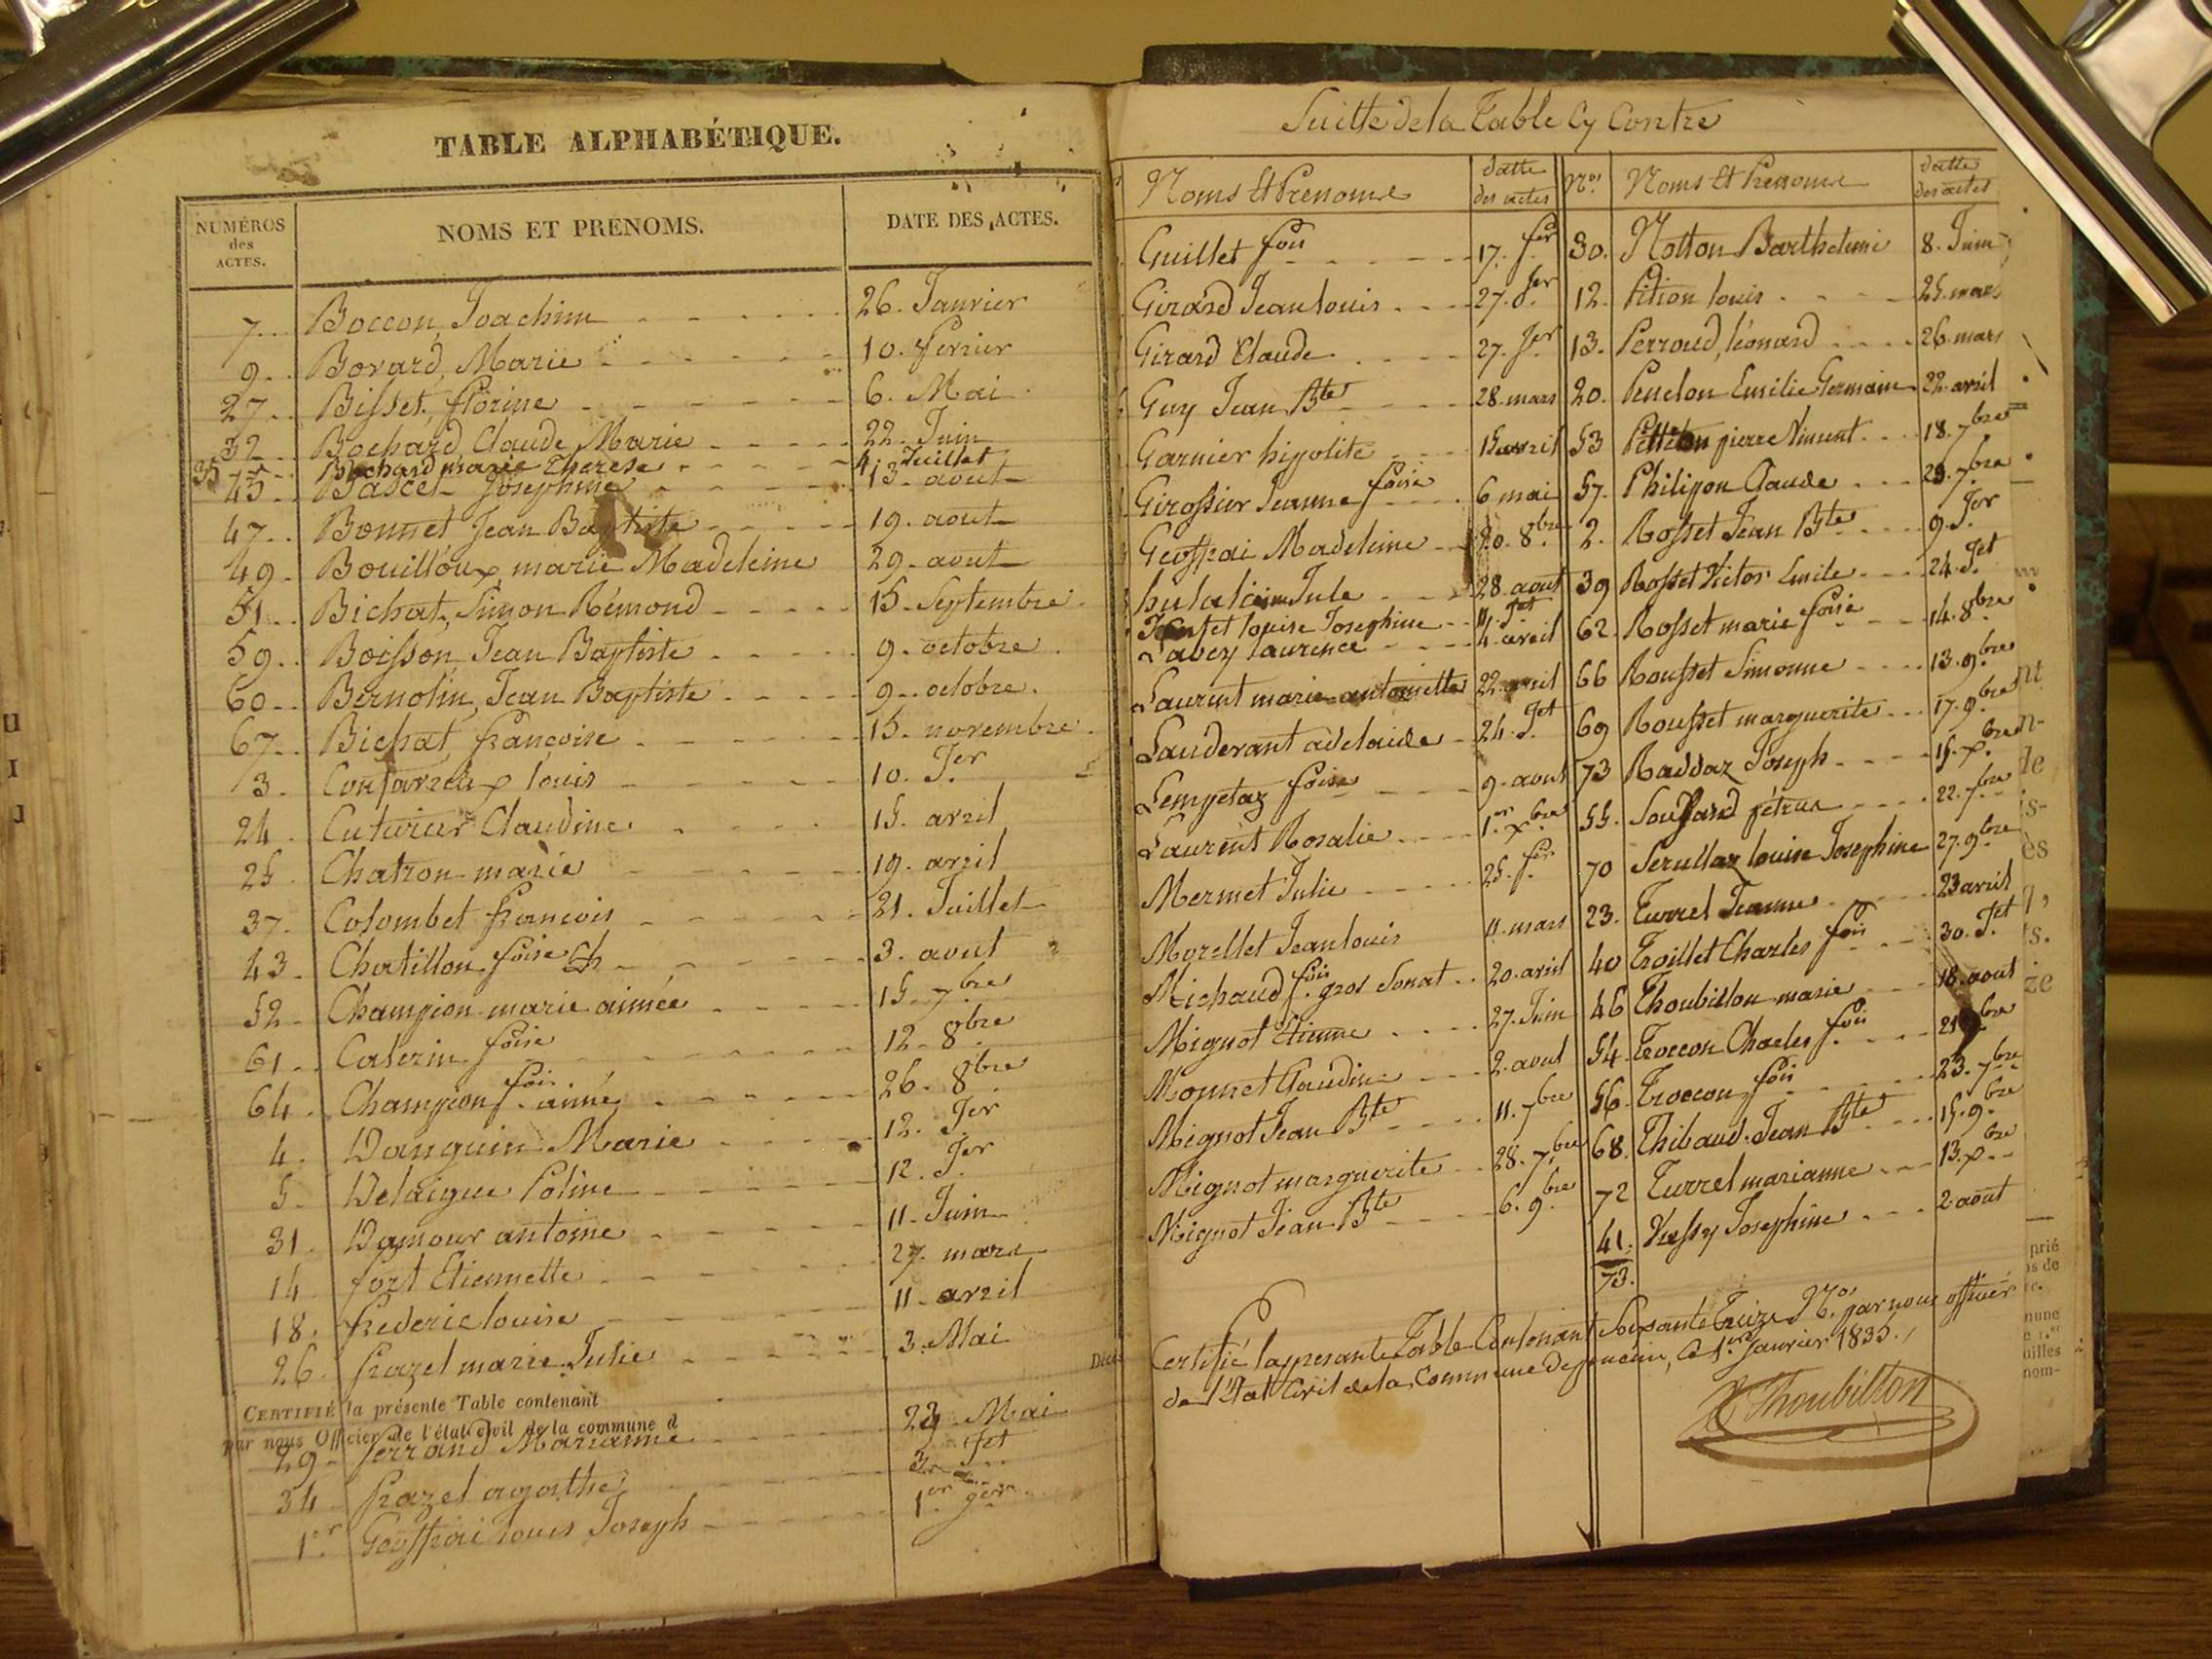 TABLE ALPHABÉTIQUE.
NUMÉROS des ACTES. NOMS ET PRENOMS. DATE DES ACTES.
7 Boccon Joachim 26. Janvier
9 Bovard, Marie 10. fevrier
27 Bisset, florine 6. Mai
32 Bochard Claude Marie 22. Juin
35 Bochard marie Therese 4 Juillet
45 Bascet Josephine 13. aout
47 Bonnet Jean Baptiste 19. aout
49 Bouilloux marie Madeleine 29. aout
51 Bichat, Simon Rémond 15. Septembre
59 Boisson, Jean Baptiste 9. octobre
60 Bernolin, Jean Baptiste 9. octobre
67 Bichat françoise 15. novembre
3 louis 10. Jer
24 Cuturier Claudine 15. avril
25 Chatron marie 19. avril
37. Colombet françois 21. Juillet
43 Chatillon foise 3. aout
52 Champion marie aimée 15. 7bre
61 Caterin foise 12. 8bre
64 Champion fois. aimé 26. 8bre
4. Danguin Marie 12. Jer
5. Delaigue Poline 12. Jer
31 Damour antoine 11. Juin
14 fort Etiennette 27. mars
18. frederic louise 11. avril
26 frazel marie Julie 3. Mai
CERTIFIÉ la présente Table contenant
par nous Officier de l'état civil de la commune d
29 ferrand Marianne 29 Mai
34 frazel agathe 3. Jet
1er Geoffrai louis Joseph 1er Jer
Suitte de la Table Cy Contre
Noms Et Prenoms datte des actes
Guillet fois 17. fer
Girard Jean louis 27. Jer
Girard Claude 27. Jer
Guy Jean Bte 28. mars
Garnier hipolite 15 avril
Girossier Jeanne foise 6 mai
Geoffrai Madeleine 20. 8bre
Jule 28. aout
louise Josephine 11. Jet
Laurence 4. avril
Laurent marie antoinette 22. avril
Lauderant adelaide 24. Jet
Lempetaz foise 9. aout
Laurent Rosalie 1er xbre
Mermet Julie 25. fer
Morellet Jean louis 11. mars
Michaud fois. gros Sonat 20. avril
Mignot Etienne 27. Juin
Monnet Claudine 2. aout
Mignot Jean Bte 11. 7bre
Mignot marguerite 28. 7bre
Mignot Jean Bte 6. 9bre
Nos Noms Et Prenoms datte des actes
30. Notton Barthelemi 8. Juin
12. Pition louis 25. mars
13. Perroud, léonard 26. mars
20. Penelon Emilie Germain 22. avril
53 Pettiton pierre Vincent 18. 7bre
57. Philipon Claude 29. 7bre
2. Rosset Jean Bte 9. Jer
39 Rosset Victor Emile 24. Jet
62. Rosset marie foise 14. 8bre
66 Rousset Simonne 13. 9bre
69 Rousset marguerite 17. 9bre
73 Raddaz Joseph 15. xbre
55. Souffard pétrus 22. 7bre
70 Serullaz louise Josephine 27. 9bre
23. Turrel Jeanne 23 avril
40 Troillet Charles fois 30. Jet
46 Thoubillon marie 18. aout
54. Troccon Charles fois 21 7bre
56. Troccon fois 23. 7bre
68. Thibaud. Jean Bte 15. 9bre
72 Turrel marianne 13. x
41. Vussy Josephine 2 aout
73.
Certifié la presante Table Contenant Soixante Treize Nos. par nous officier
de l'Etat Civil de la Commune de, Ce 1er Janvier 1835.
Thoubillon